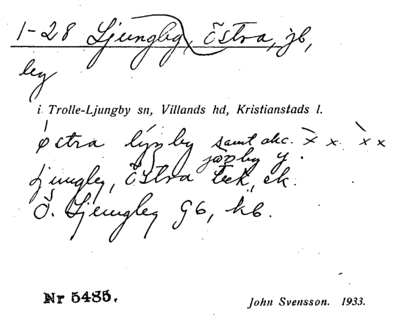 1-28 Ljungby, Östra, jb,
by
i Trolle-Ljungby sn, Villands hd, Kristianstads l.
östra samt akc. x̀ x. x̀ x
Ljungby, Östra teck. ek.
Ö. Ljungby Gb, kb.
Nr 5485. John Svensson. 1933.